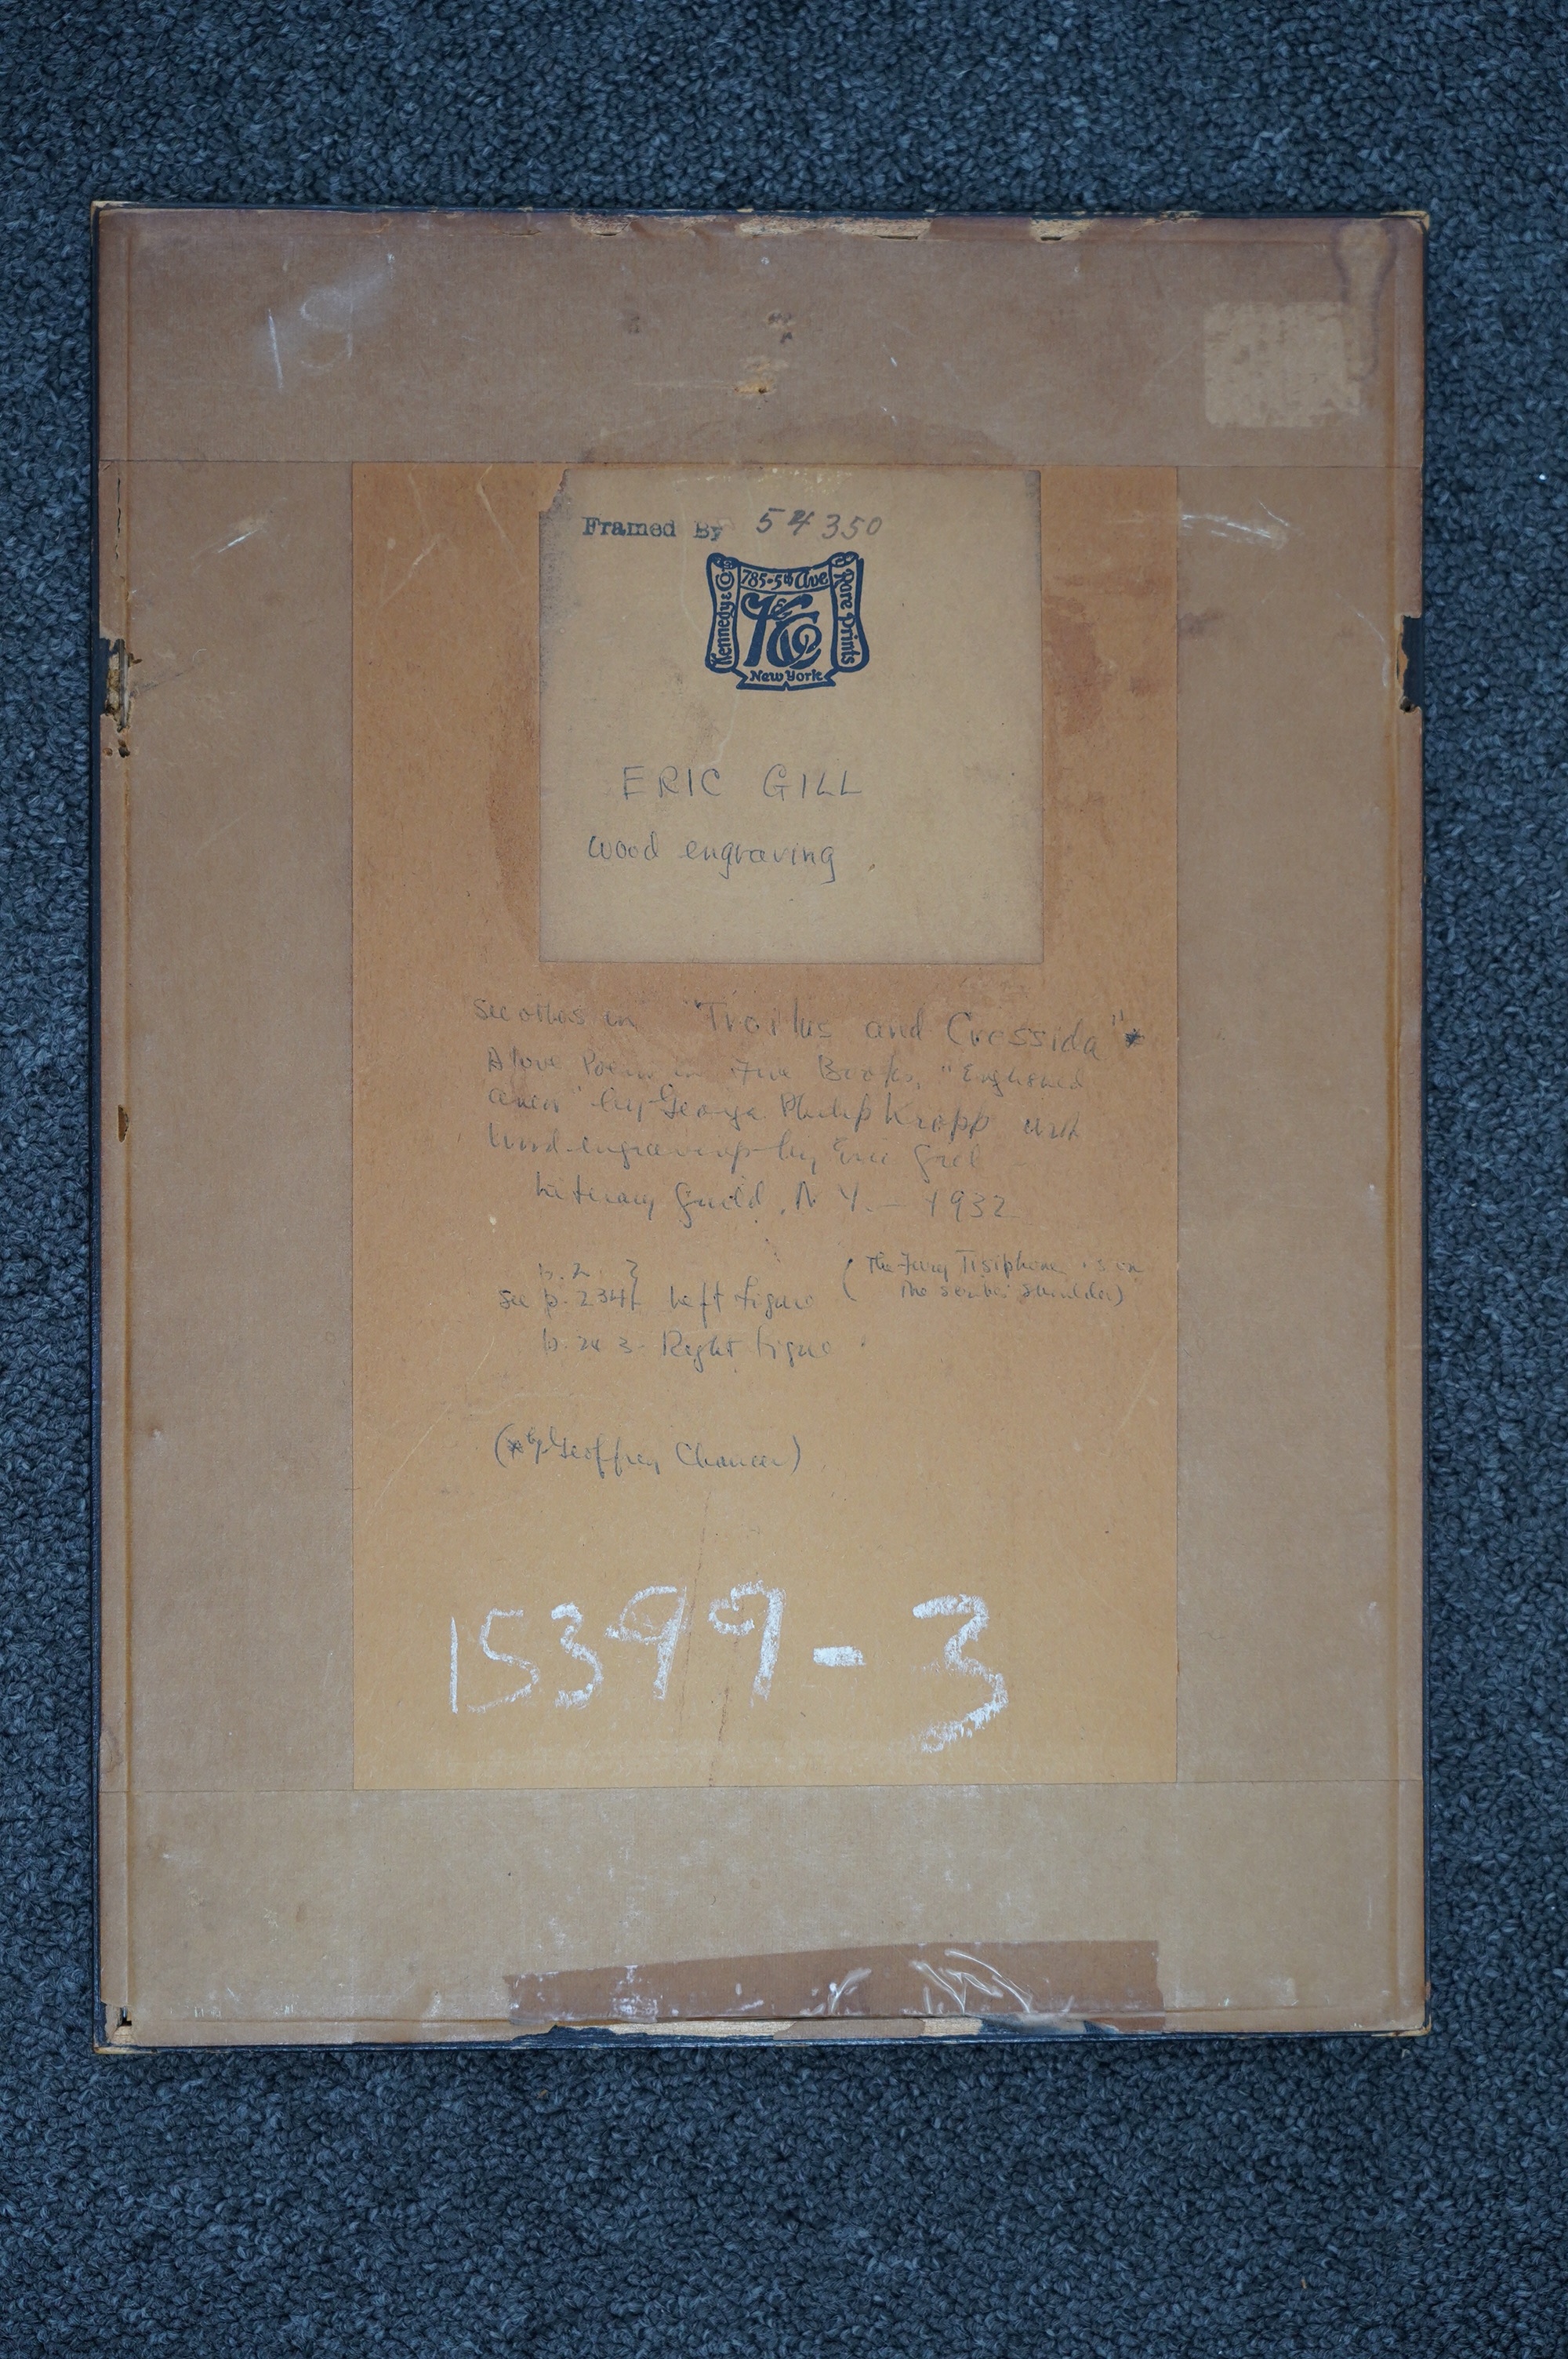 19
Framed By 54350
785-5th Ave
Kennedy & Co
K & Co
Rare Prints
New York
ERIC GILL
wood engraving
See others in "Troilus and Cressida" *
A love Poem in Five Books, "Englished
anew" by George Philip Krapp with
Wood-engravings by Eric Gill
Literary Guild, N. Y. — 1932
p. 2 ?
(The Fury Tisiphone is on
see p. 234 Left figure
the scribes shoulder)
p. 243 - Right figure
(* by Geoffrey Chaucer)
15399-3